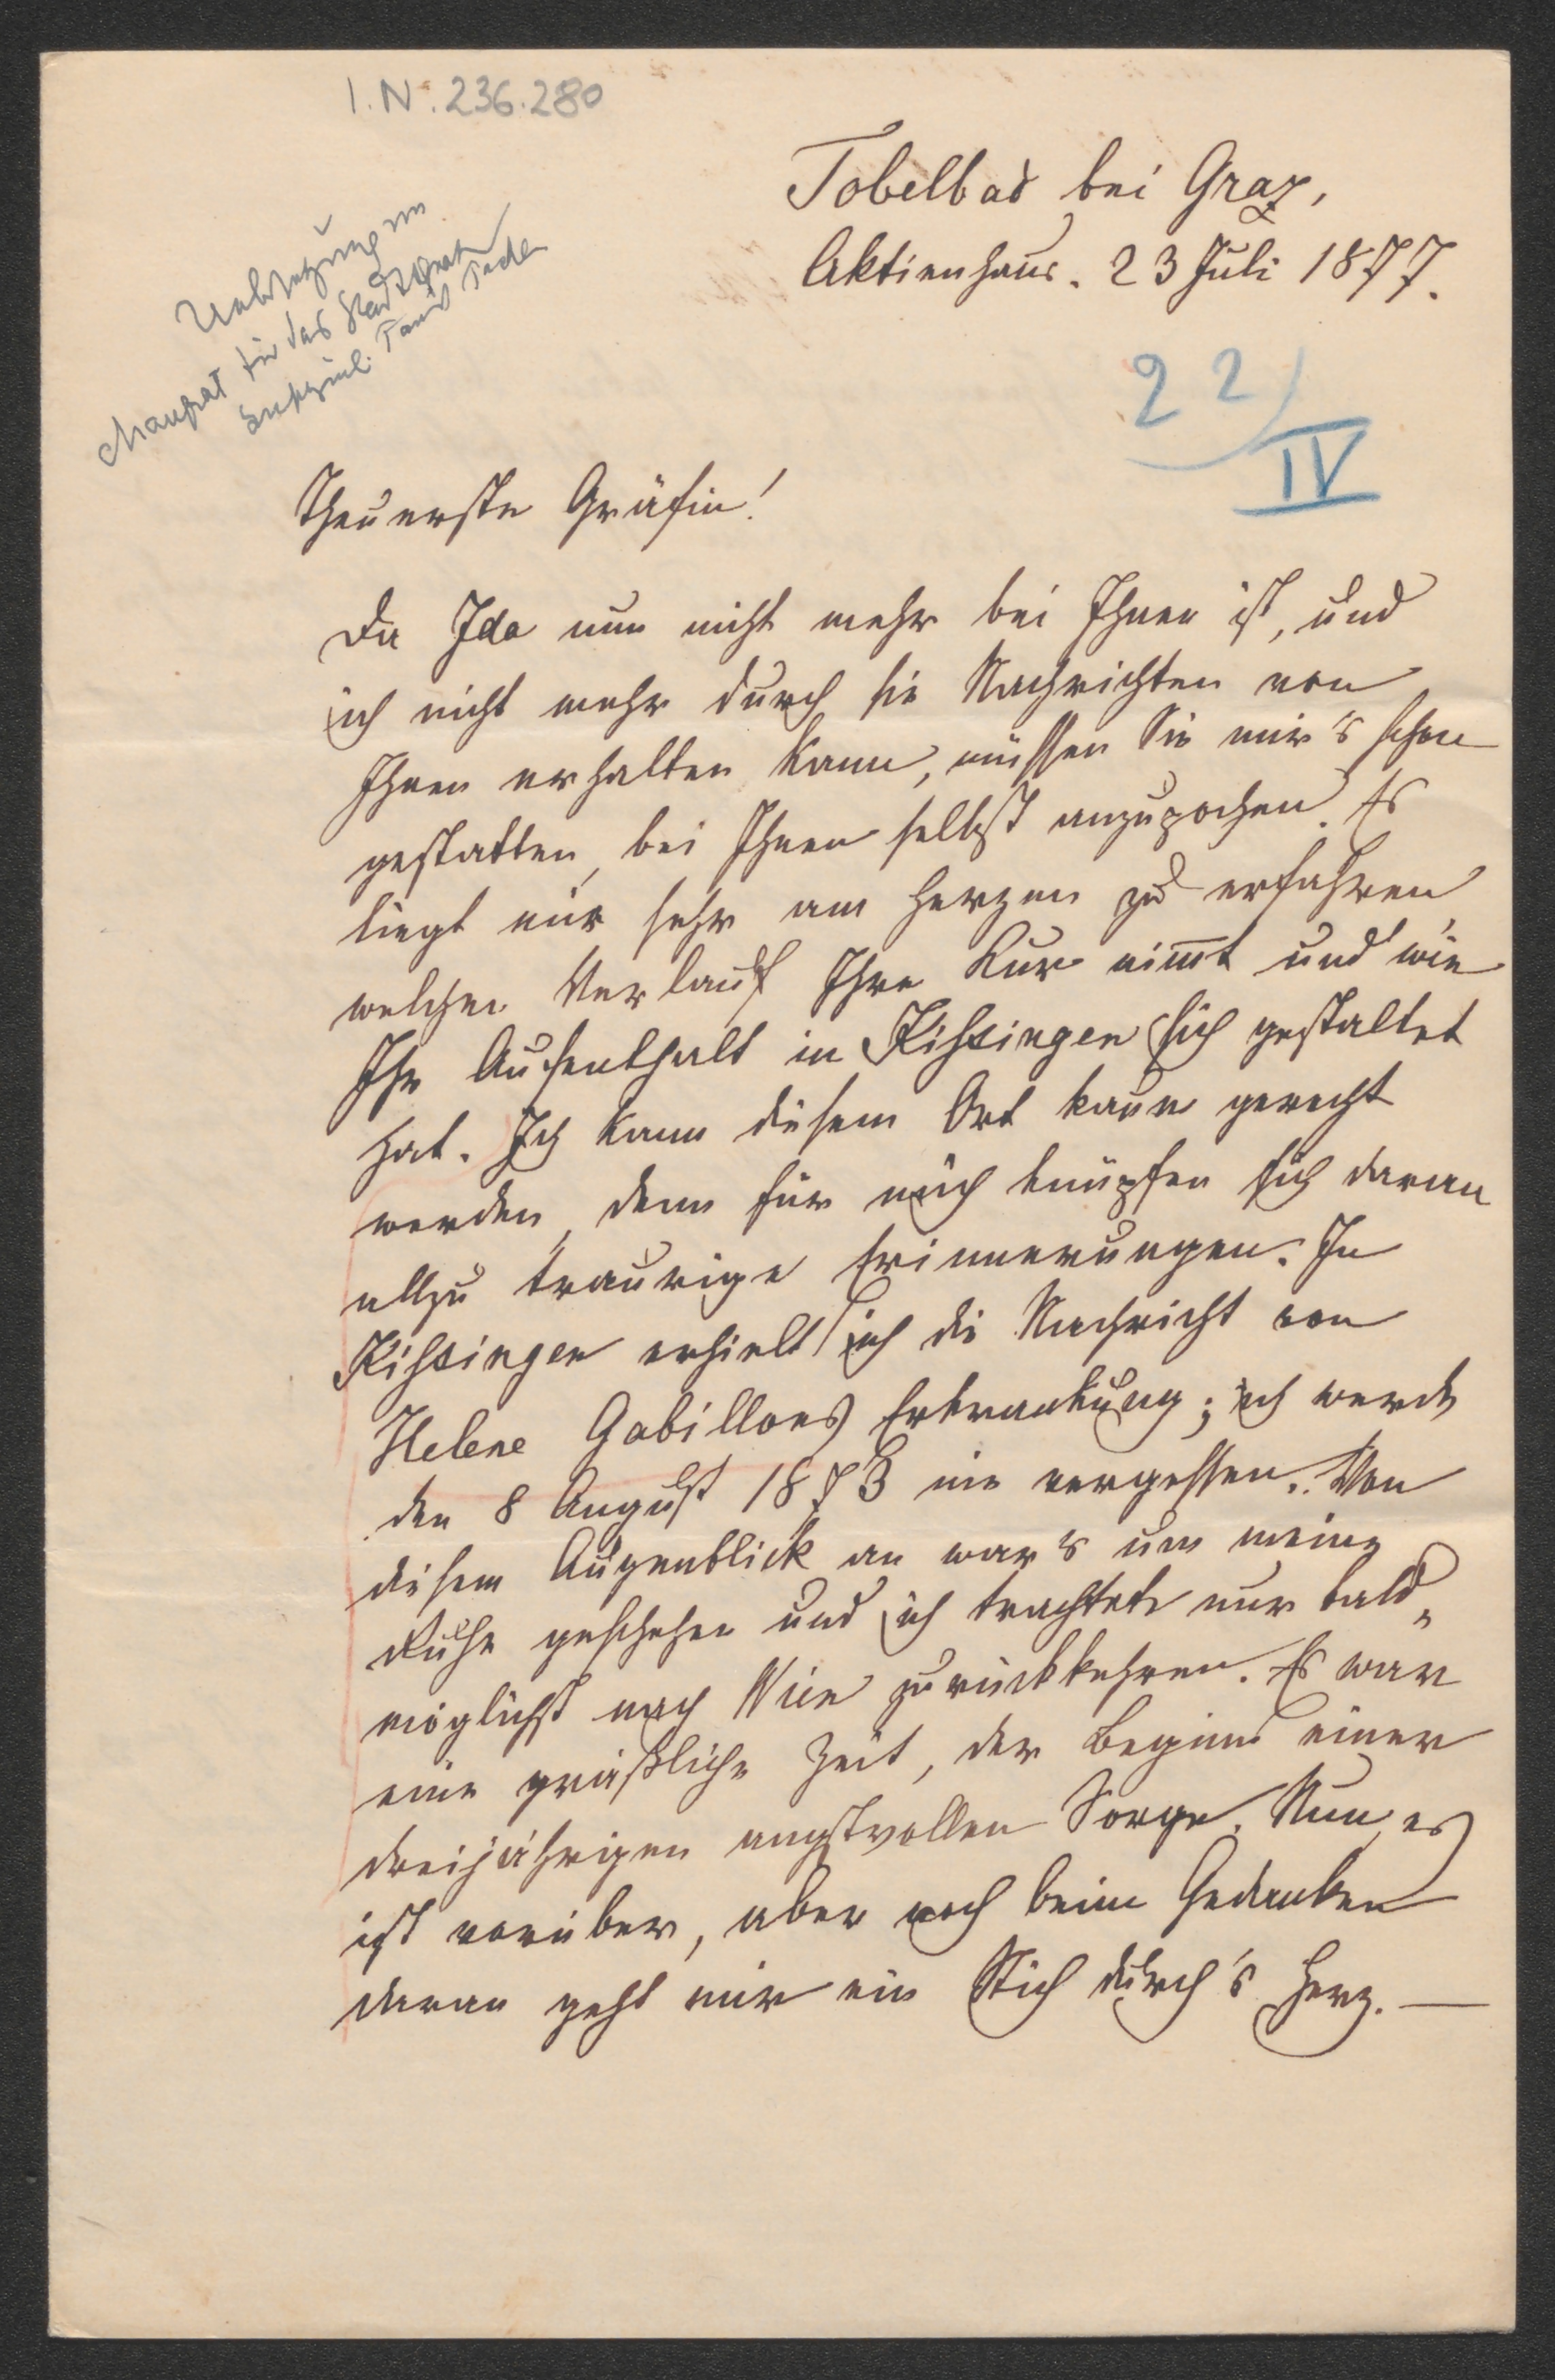 I.N. 236.280
Tobelbad bei Graz,
Aktienhaus. 23 Juli 1877.
Uebersetzung von
Mauprat für das Stadttheater
22/IV
Theuerste Gräfin!
Da Ida nun nicht mehr bei Ihnen ist, und
ich nicht mehr durch sie Nachrichten von
Ihnen erhalten kann, müssen Sie mir's schon
gestatten, bei Ihnen selbst anzupochen. Es
liegt mir sehr am Herzen zu erfahren
welchen Verlauf Ihre Kur nimmt und wie
Ihr Aufenthalt in Kissingen sich gestaltet
hat. Ich kann diesem Ort kaum gerecht
werden, denn für mich knüpfen sich daran
allzu traurige Erinnerungen. In
Kissingen erhielt ich die Nachricht von
Helene Gabillons Erkrankung; ich werde
den 8 August 1873 nie vergessen. Von
diesem Augenblick an war's um meine
Ruhe geschehen und ich trachtete nur bald„
möglichst nach Wien zurückkehren. Es war
eine gräßliche Zeit, der Beginn einer
dreijährigen angstvollen Sorge. Nun, es
ist vorüber, aber noch beim Gedanken
daran geht mir ein Stich durch's Herz. —